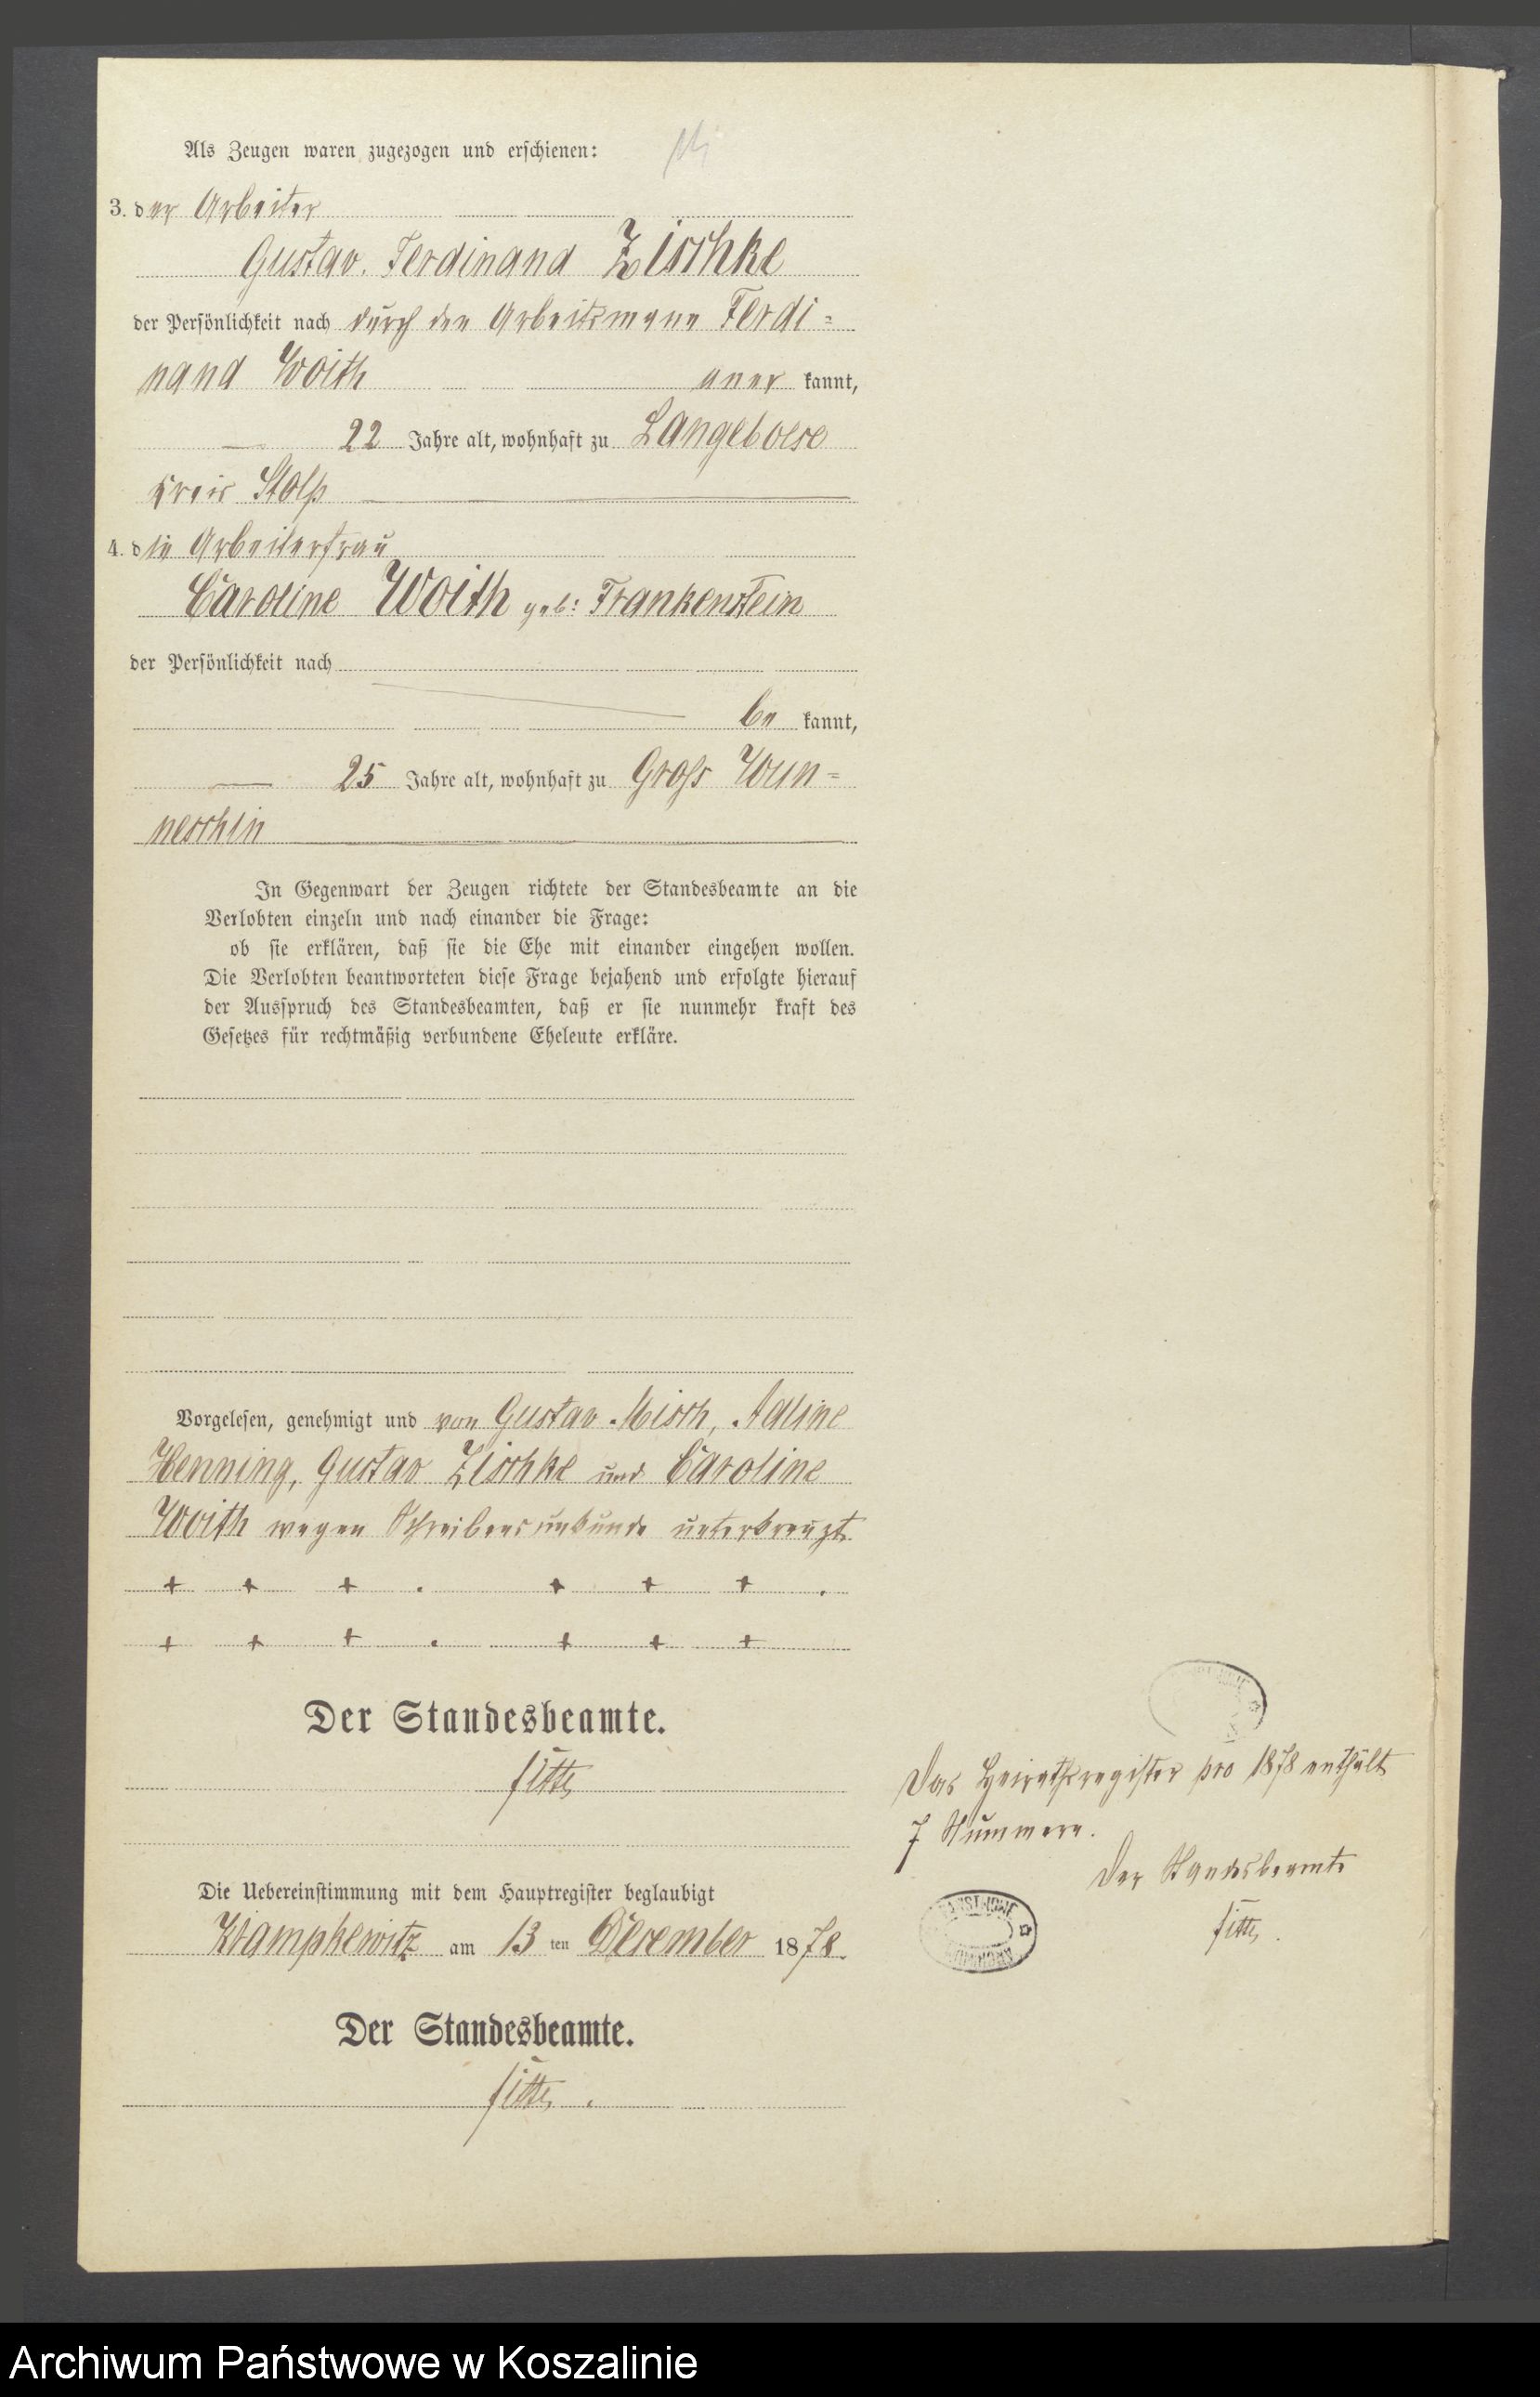 Als Zeugen waren zugezogen und erschienen:
3. der Arbeiter
Gustav Ferdinand Zischke
der Persönlichkeit nach durch den Arbeitsmann Ferdi-
nand Woith aner kannt,
22 Jahre alt, wohnhaft zu Langeboese
Kreis Stolp
4. die Arbeiterfrau
Caroline Woith geb: Frankenstein
der Persönlichkeit nach
be kannt,
25 Jahre alt, wohnhaft zu Gross Wun-
neschin
In Gegenwart der Zeugen richtete der Standesbeamte an die
Verlobten einzeln und nach einander die Frage:
ob sie erklären, daß sie die Ehe mit einander eingehen wollen.
Die Verlobten beantworteten diese Frage bejahend und erfolgte hierauf
der Ausspruch des Standesbeamten, daß er sie nunmehr kraft des
Gesetzes für rechtmäßig verbundene Eheleute erkläre.
Vorgelesen, genehmigt und von Gustav Misch,
Henning, Gustav Zischke und Caroline
Woith wegen Schreibensunkunde unterkreuzt
+ + + . + + + .
+ + + . + + +
Der Standesbeamte.
Die Uebereinstimmung mit dem Hauptregister beglaubigt
Krampkewitz am 13 ten December 1878.
Der Standesbeamte.
Das Heirathsregister pro 1878 enthält
7 Nummern.
Der Standesbeamte
Archiwum Państwowe w Koszalinie